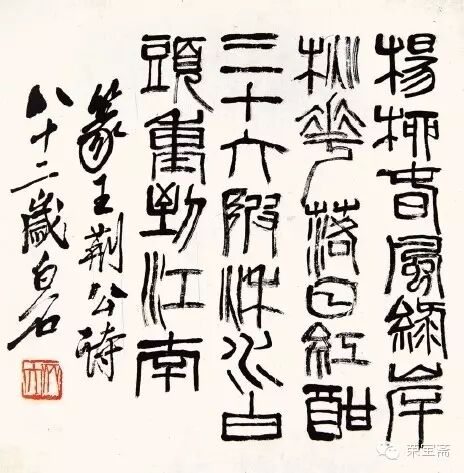 楊柳春風綠岸
桃花落日紅酣
三十六陂流水白
頭重到江南
篆王荊公詩
八十二歲白石
荣宝斋